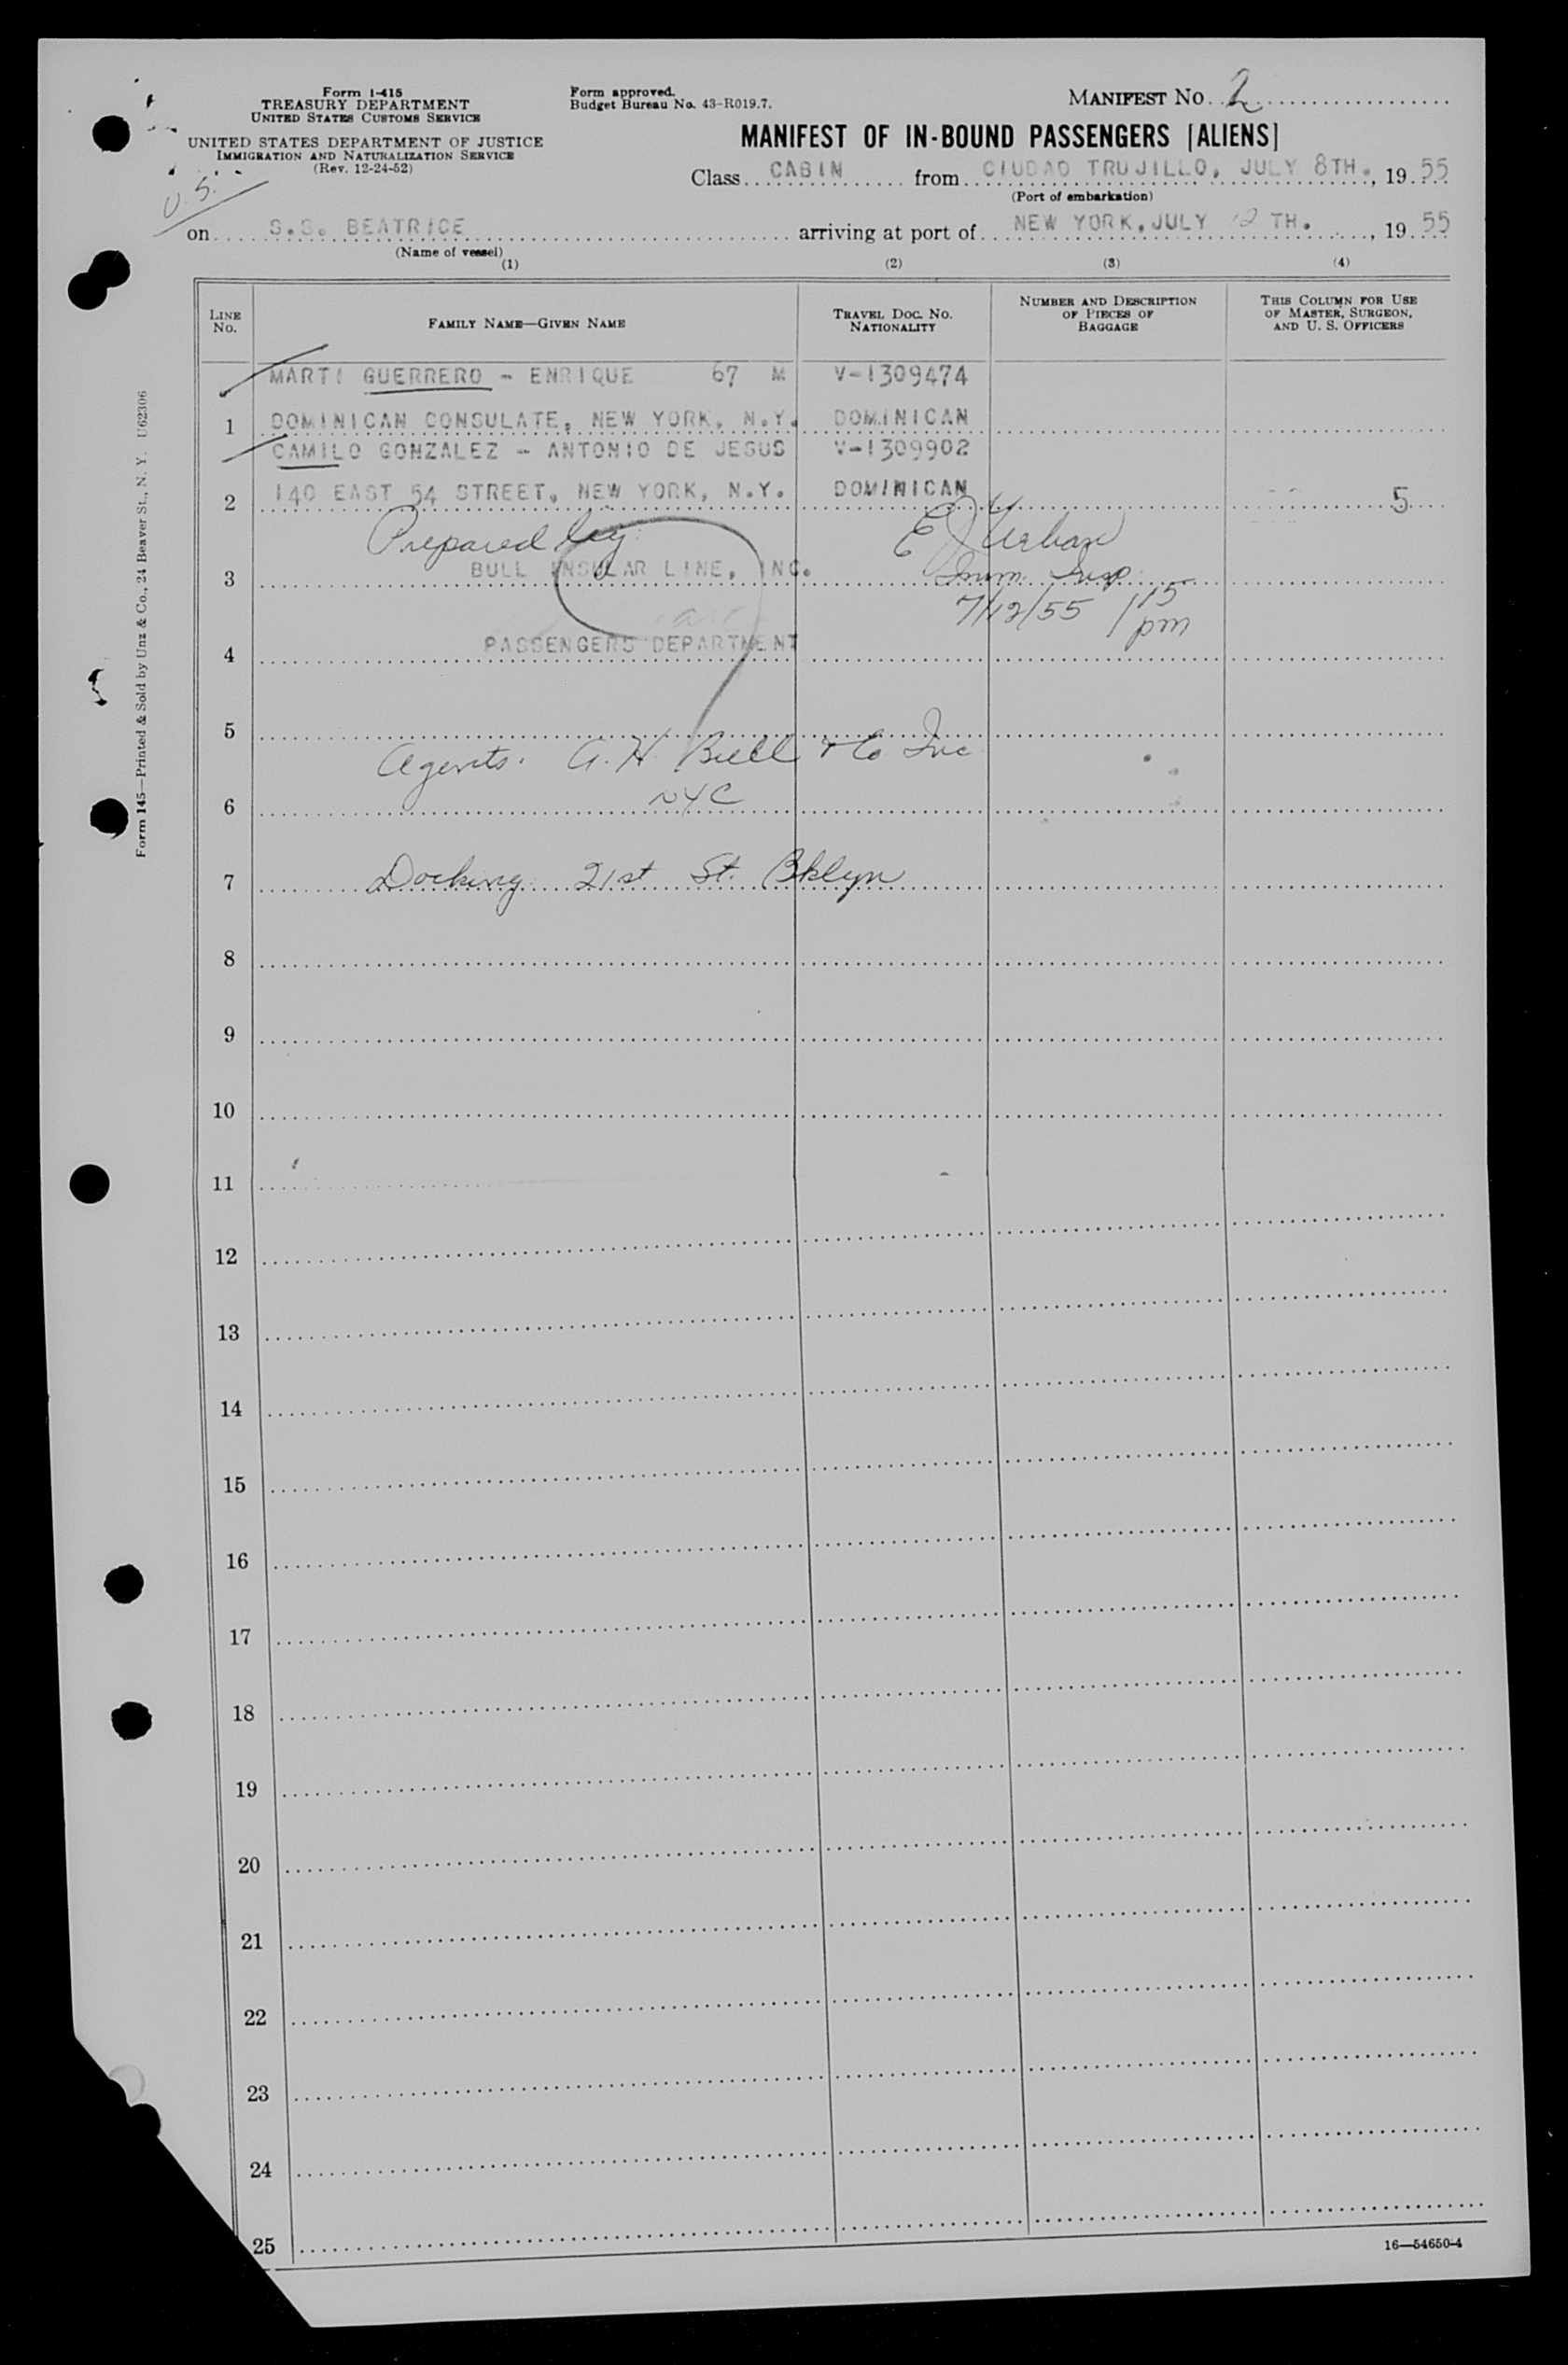 Form I-415
TREASURY DEPARTMENT
UNITED STATES CUSTOMS SERVICE
UNITED STATES DEPARTMENT OF JUSTICE
IMMIGRATION AND NATURALIZATION SERVICE
(Rev. 12-24-52)
U.S.
Form approved.
Budget Bureau No. 43-R019.7.
MANIFEST No. 2
MANIFEST OF IN-BOUND PASSENGERS [ALIENS]
Class CABIN from CIUDAD TRUJILLO, JULY 8TH., 19 55
(Port of embarkation)
on S.S. BEATRICE arriving at port of NEW YORK, JULY 12 TH. , 19 55
(Name of vessel)
(1) (2) (3) (4)
LINE No. FAMILY NAME—GIVEN NAME TRAVEL DOC. No. NATIONALITY NUMBER AND DESCRIPTION OF PIECES OF BAGGAGE THIS COLUMN FOR USE OF MASTER, SURGEON, AND U. S. OFFICERS
MARTI GUERRERO - ENRIQUE 67 M V-1309474
1 DOMINICAN CONSULATE, NEW YORK, N.Y. DOMINICAN
CAMILO GONZALEZ - ANTONIO DE JESUS V-1309902
2 140 EAST 54 STREET, NEW YORK, N.Y. DOMINICAN 5
Prepared by: E J Urban
3 BULL INSULAR LINE, INC. Imm. Insp.
7/12/55 1 15 pm
4 PASSENGERS DEPARTMENT
5
Agents. A. H. Bull & Co Inc
6 NYC
7 Docking 21st St. Bklyn
8
9
10
11
12
13
14
15
16
17
18
19
20
21
22
23
24
25
16—54650-4
Form 145—Printed & Sold by Unz & Co., 24 Beaver St., N. Y. U62306